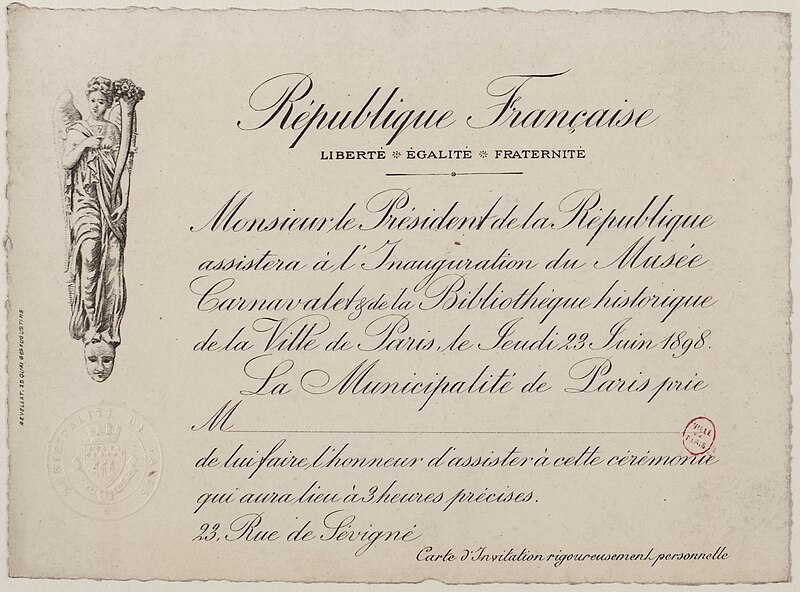 République Française
LIBERTÉ * ÉGALITÉ * FRATERNITÉ
Monsieur le Président de la République
assistera à l'Inauguration du Musée
Carnavalet & de la Bibliothèque historique
de la Ville de Paris, le Jeudi 23 Juin 1898.
La Municipalité de Paris prie
M
de lui faire l'honneur d'assister à cette cérémonie
qui aura lieu à 3 heures précises.
23, Rue de Sévigné
Carte d'Invitation rigoureusement personnelle
REVELLAT, 25 QUAI DES AUGUSTINS
MUNICIPALITÉ DE PARIS
VILLE
DE
PARIS